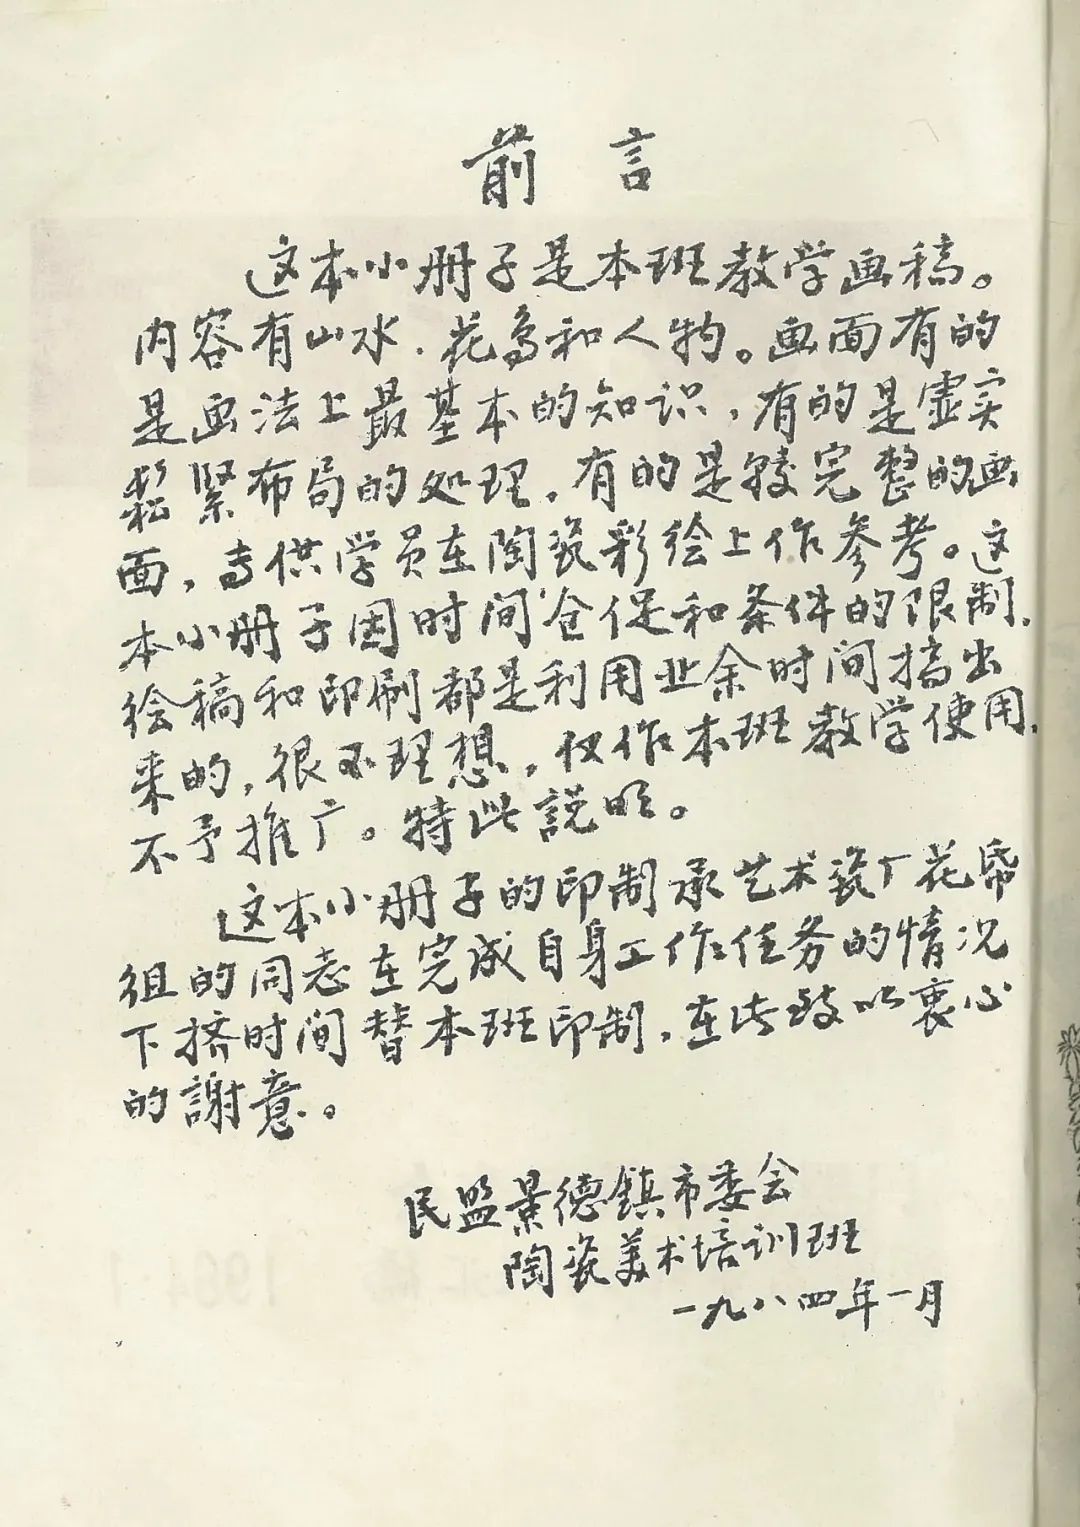 前言
这本小册子是本班教学画稿。
内容有山水.花鸟和人物。画面有的
是画法上最基本的知识,有的是虚实
鬆紧布局的处理,有的是较完整的画
面,专供学员在陶瓷彩绘上作参考。这
本小册子因时间仓促和条件的限制.
绘稿和印刷都是利用业余时间搞出
来的,很不理想,仅作本班教学使用.
不予推广。特此説明。
这本小册子的印制承艺术瓷厂花帋
组的同志在完成自身工作任务的情况
下挤时间替本班印制,在此致以衷心
的謝意。
民盟景德鎮市委会
陶瓷美术培训班
一九八四年一月